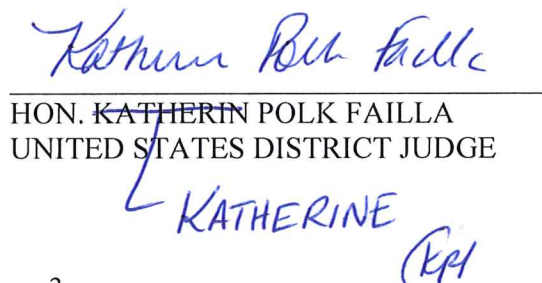 Katherine Polk Failla
HON. KATHERIN POLK FAILLA
UNITED STATES DISTRICT JUDGE
KATHERINE
KPF
2